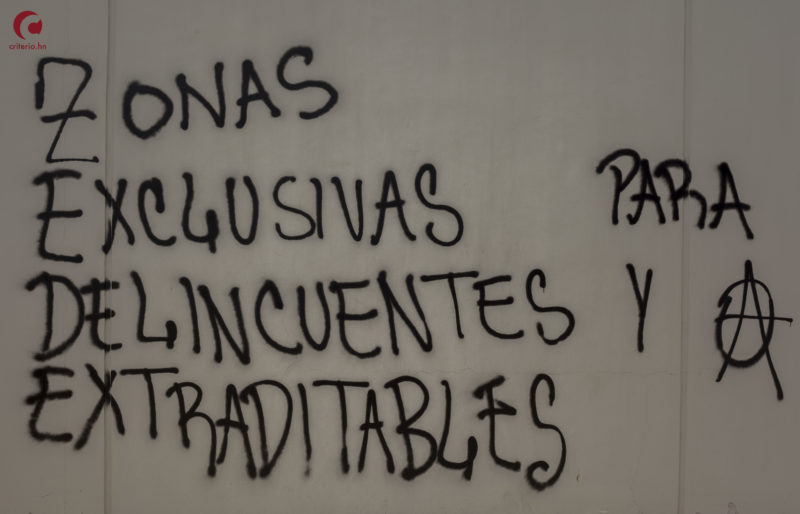 criterio.hn
ZONAS
EXCLUSIVAS PARA
DELINCUENTES Y
EXTRADITABLES